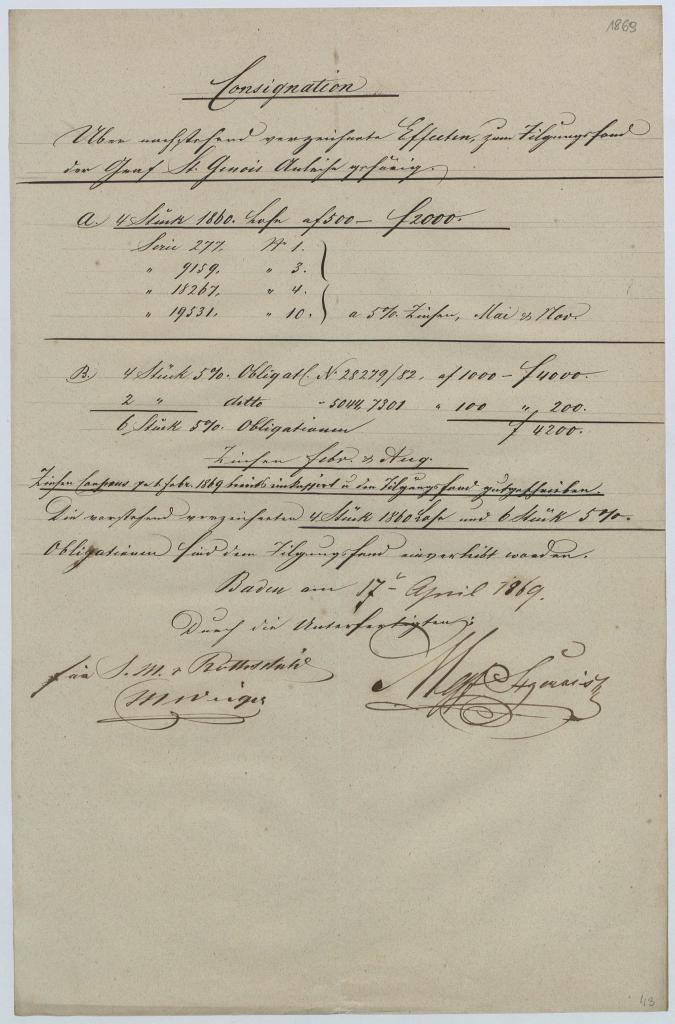 1869
Consignation
Über nachstehend verzeichnete Effecten, zum Tilgungsfond
der Graf St. Genois Anleihe gehörig.
A. 4 Stück 1860. Lose af 500 – f 2000.
Serie 277. Nº 1.
" 9159. " 3.
" 18267. " 4.
" 19531. " 10. a 5%. Zinsen, Mai & Nov.
B.) 4 Stück 5%. Obligat. N 28279/82. af 1000 – f 4000.
2 " detto " 5044.7301 " 100 " 200.
6 Stück 5%. Obligationen f 4200.
Zinsen Febr. & Aug.
Zinsen Coupons pr 1 Febr. 1869 bereits u den Tilgungsfond gutgeschrieben.
Die vorstehend verzeichneten 4 Stück 1860 Lose und 6 Stück 5%.
Obligationen sind dem Tilgungsfond einverleibt worden.
Baden am 17t April 1869.
Durch die Unterfertigten:
für S. M. v Rothschild
St genois
43